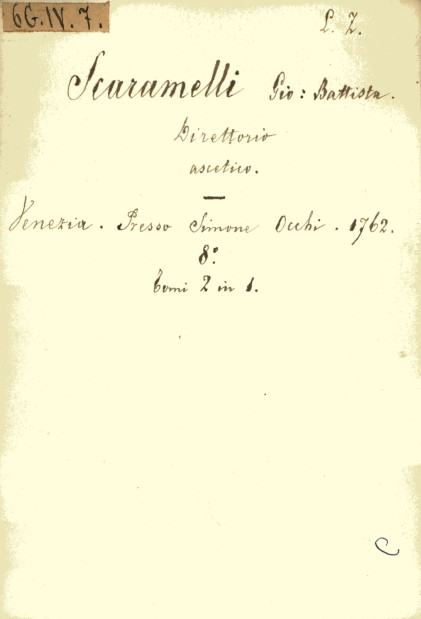 6G.IV.7. L. Z.
Scaramelli Gio: Battista.
Direttorio
ascetico.
Venezia. Presso Simone Occhi. 1762.
8°.
Tomi 2 in 1.
C